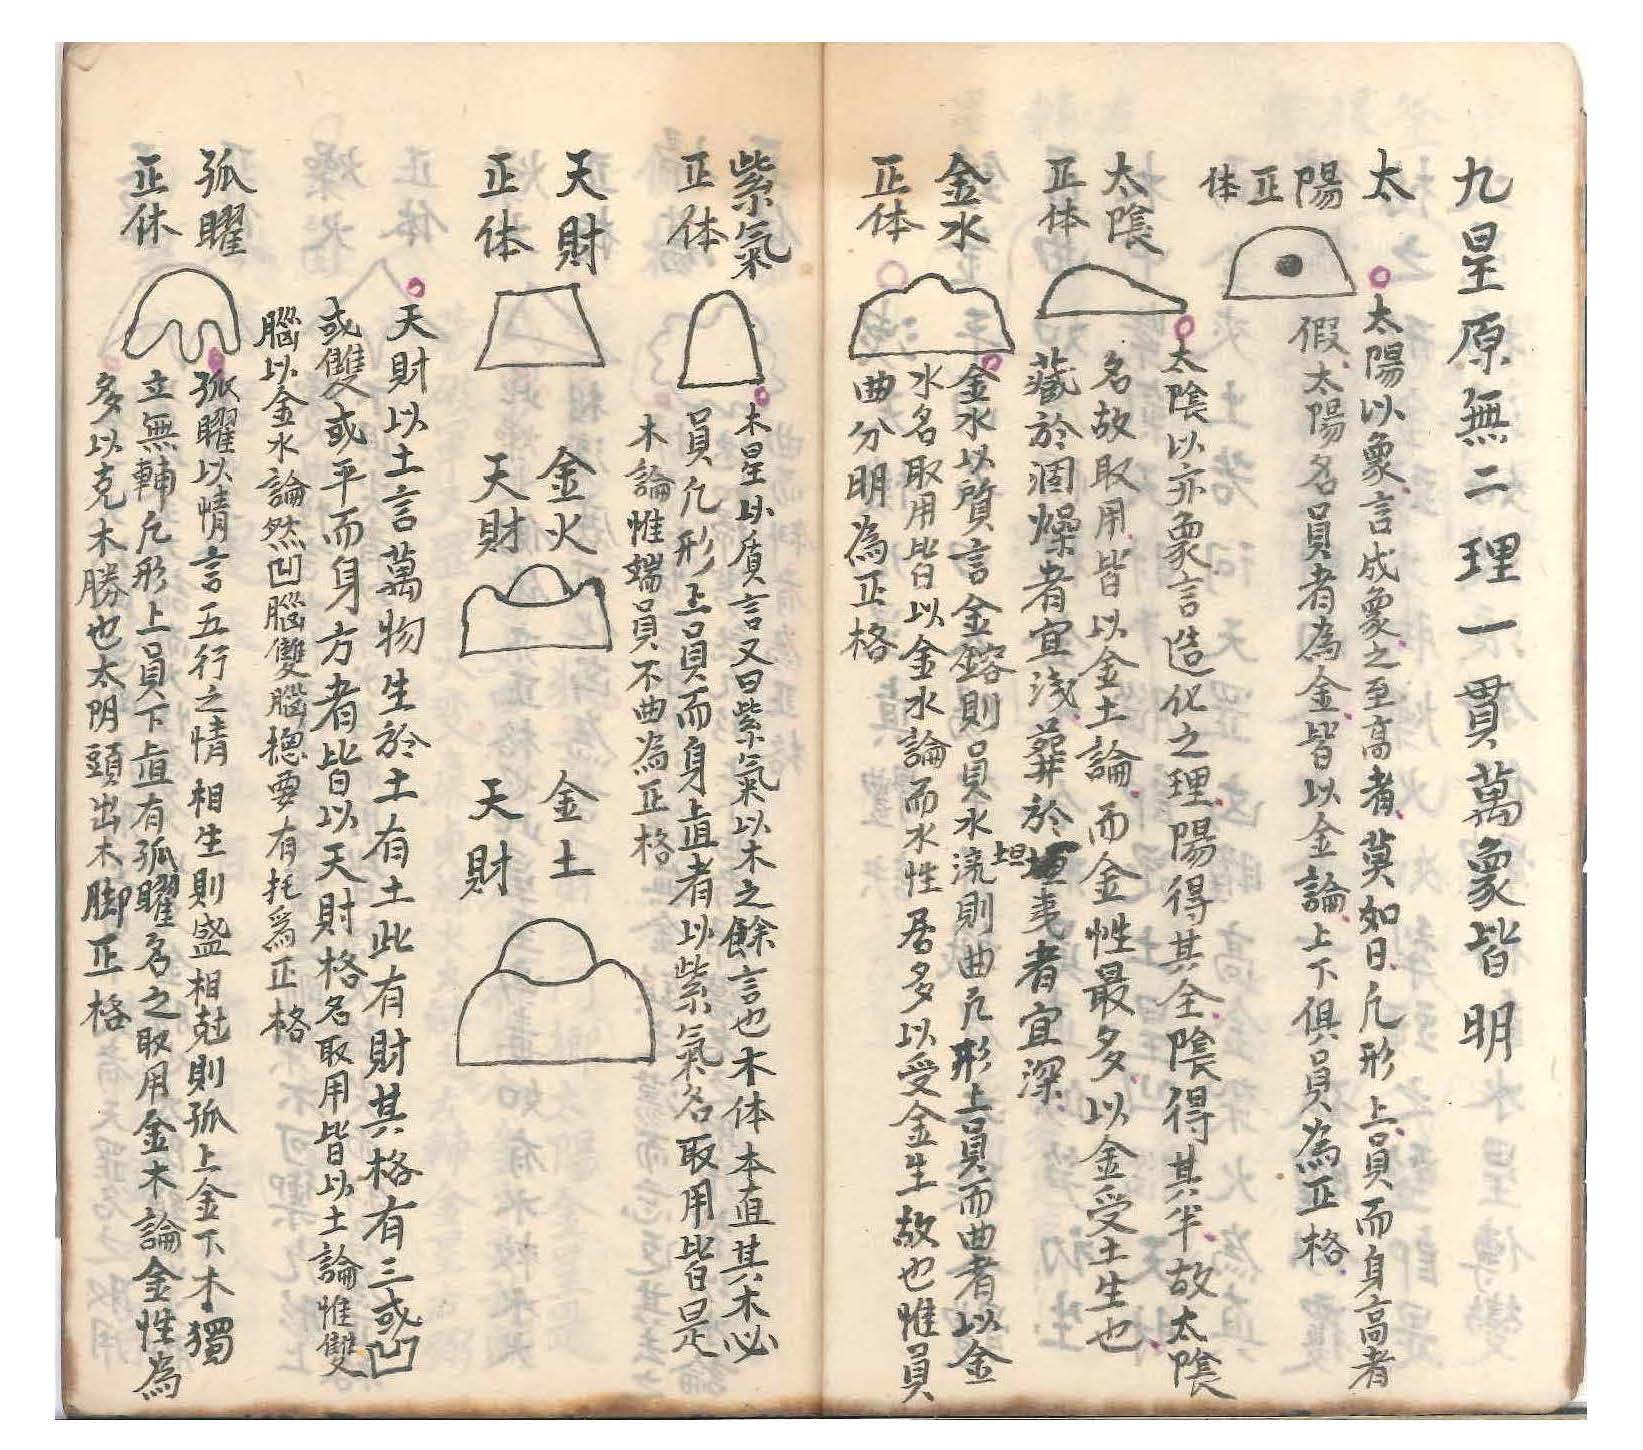 九星原無二理一貫萬象皆明
太
陽
正
体
太陽以象言成象之至高者莫如日凢形上員而身高者
假太陽名員者為金皆以金論上下俱員為正格
太陰
正体
太陰以亦象言造化之理陽得其全陰得其半故太陰
名故取用皆以金土論而金性最多以金受土生也
藏於涸燥者宜淺葬於坦夷者宜深
金水
正体
金水以質言金鎔則員水流則曲凢形上員而曲者以金
水名取用皆以金水論而水性居多以受金生故也惟員
曲分明為正格
紫氣
正体
木星以质言又曰紫氣以木之餘言也木体本直其木必
員凢形上員而身直者以紫氣名取用皆是
木論惟端員不曲為正格
天財
正体
金火
天財
金土
天財
天財以土言萬物生於土有土此有財其格有三或凹
或雙或平而身方者皆以天財格名取用皆以土論惟雙
腦以金水論然凹腦雙腦揔要有托為正格
孤曜
正体
孤曜以情言五行之情相生則盛相尅則孤上金下木獨
立無輔凢形上員下直有孤曜名之取用金木論金性為
多以克木勝也太阴頭出木脚正格